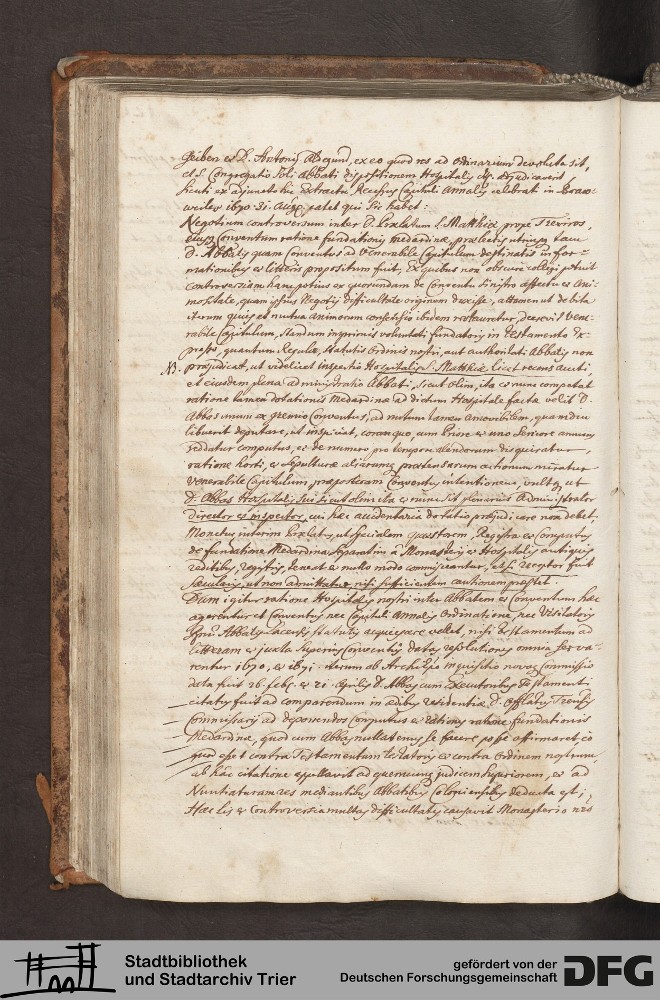 Geiben et D. Antonij Alsgund, ex eo quod res ad ordinarium devoluta sit,
et S. Congregatio soli Abbati dispositionem Hospitalis adjudicaverit,
sicuti ex adjuncto hic Extractu Recessus Capituli Annalis celebrati in Braw-
weiler 1670. 31. Aug. patet qui sic habet:
Negotium controversum inter D. Prælatum S. Matthiæ prope Treviros,
Conventum ratione fundationis Medardinæ, præteritis utrinque tam
D. Abbatis quam Conventus ad venerabile Capitulum destinatis infor-
mationibus et litteris propositum fuit, Ex quibus non obscure colligi potuit
controversiam hanc potius ex quorundam de Conventu sinistro affectu et ani-
mositate, quam ipsius Negotij difficultate originem duxisse, attamen ut debita
iterum quies et mutua animorum consensio ibidem restauretur, decrevit Vene-
rabile Capitulum, standum inprimis voluntati fundatoris in testamento Ex-
pressæ, quantum Regulæ, statutis ordinis nostri, aut authoritati Abbatis non
NB. præjudicat, ut videlicet inspectio Hospitalis S. Matthiæ licet recens aucti,
et eiusdem plena administratio Abbati, sicut olim, ita et nunc competat
ratione tamen dotationis Medardinæ ad dictum Hospitale factæ velit D.
Abbas unum ex gremio Conventus, ad nutum tamen amovibilem, quamdiu
libuerit deputare, ut inspiciat, coramque, cum Priore et uno Seniore annuus
reddatur computus, et de numero pro tempore alendorum disquiratur,
ratione horti, et sepulturæ aliarumq prætensarum actionum miratur
Venerabile Capitulum, præposteram Conventus intentionem, vultq ut
D. Abbas Hospitalis sui sicut olim ita et nunc sit plenarius Administrator
director et inspector, cui hæc accidentaria dotatio præjudicare non debet,
Monetur interim Prælatus, ut specialem quæstorem, Registra et computus
de fundatione Medardina separatim à Monasterij et Hospitalis antiquis
reditibus, registris, teneat et nullo modo commisceantur, et si receptor fuit
sæcularis, ut non admittatur, nisi sufficientem cautionem præstet.
Dum igitur ratione Hospitalis nostri inter Abbatem et Conventum hæc
agerentur et Conventus nec Capituli Annalis ordinatione, nec Visitatoris
Abbatis Lacensis statutis acquiescere vellet, nisi testamentum ad
litteram et juxta superioris Conventus data resolutiones omnia serva-
rentur 1670, et 1671. iterum ab Archiepo inquisitio novaq Commissio
data fuit 26. feb. et 21. Aprilis D. Abbas cum Executoribus Testamenti
citatus fuit ad comparendum in ædibus residentiæ D. Officialis Trevirensis
Commissarij ad deponendos Computus et rationes ratione fundationis
Medardinæ, quod cum Abbas nullatenus se facere posse affirmaret, eo
quod esset contra Testamentum testatoris et contra ordinem nostrum,
ab hac citatione appellavit ad quemcunq judicem superiorem, et ad
Nuntiaturam res mediantibus Abbatibus Coloniensibus deducta est;
Hæc lis et controversia multas difficultates causavit Monasterio nro
Stadtbibliothek
und Stadtarchiv Trier
gefördert von der
Deutschen Forschungsgemeinschaft
DFG